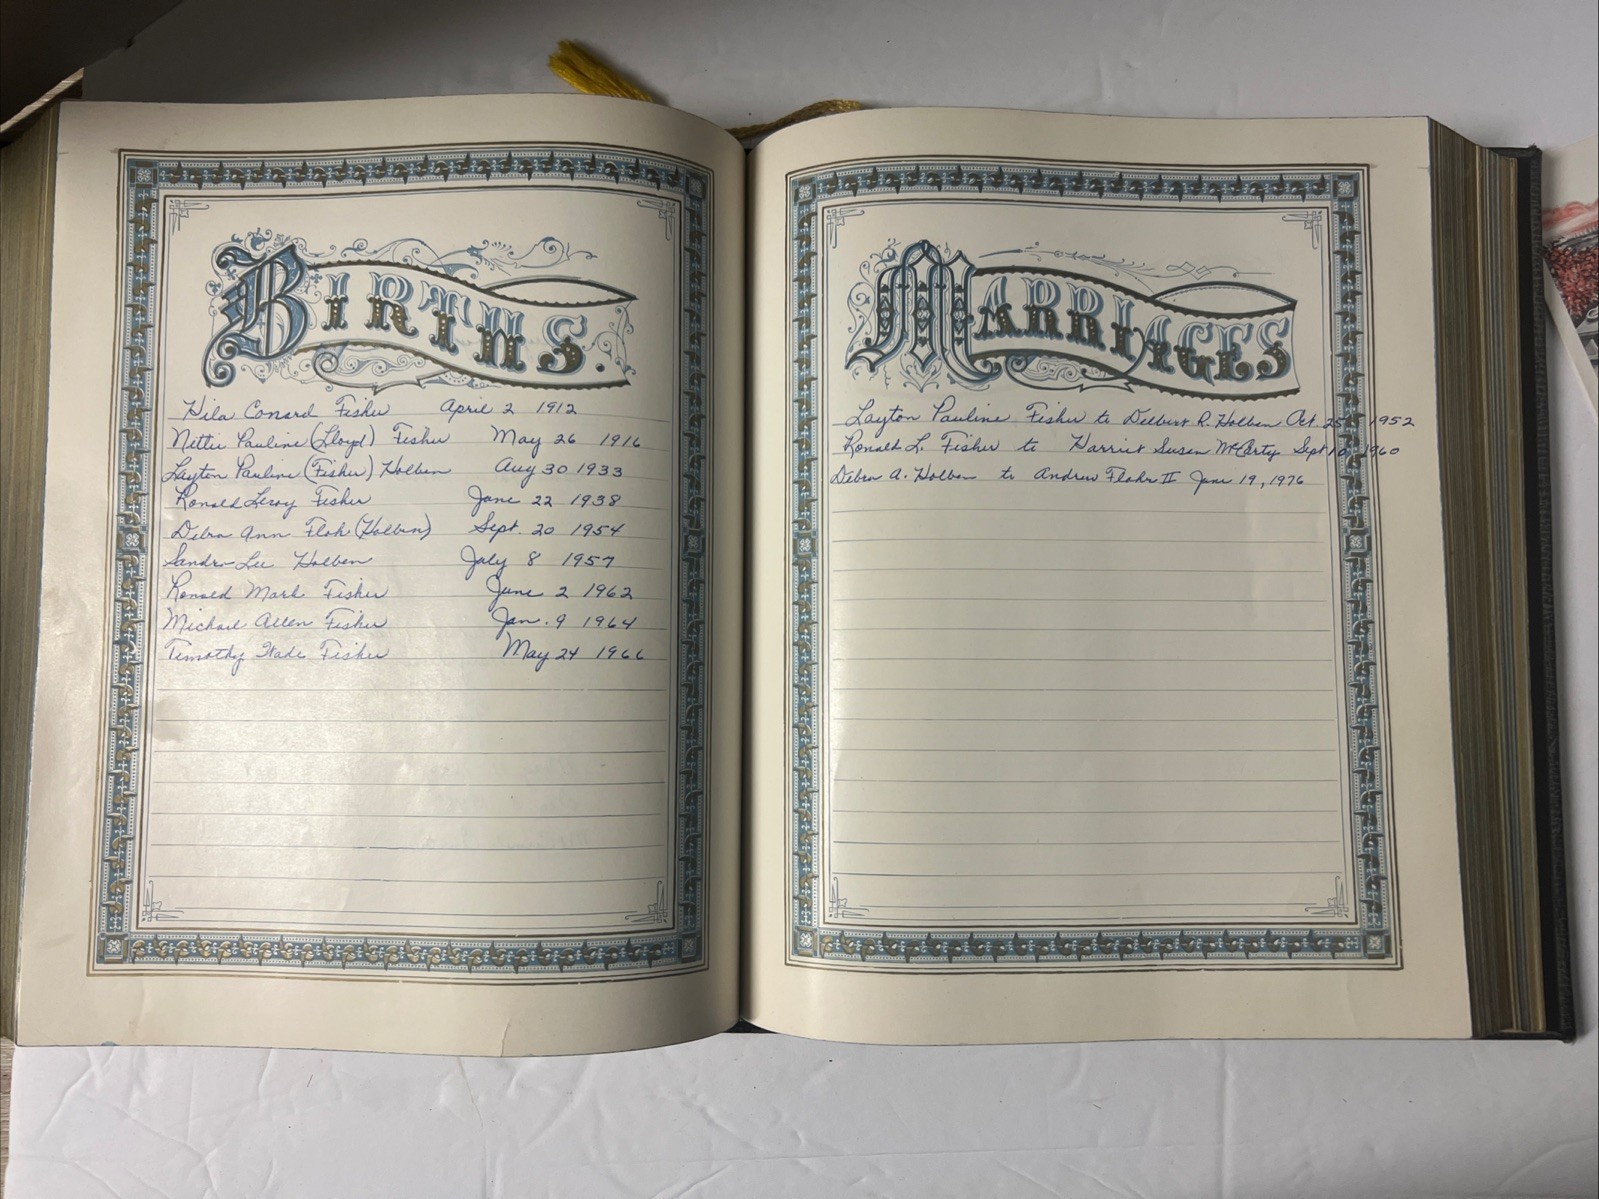 BIRTHS.
Hila Conard Fisher April 2 1912
Nettie Pauline (Lloyd) Fisher May 26 1916
Layton Pauline (Fisher) Holben Aug 30 1933
Ronald Leroy Fisher June 22 1938
Debra Ann Flohr (Holben) Sept. 20 1954
Sandra Lee Holben July 8 1957
Ronald Mark Fisher June 2 1962
Michael Allen Fisher Jan. 9 1964
Timothy Wade Fisher May 24 1966
MARRIAGES
Layton Pauline Fisher to Delbert R. Holben Oct 25 1952
Ronald L. Fisher to Harriet Susan McCarty Sept 10 1960
Debra A. Holben to Andrew Flohr II June 19, 1976